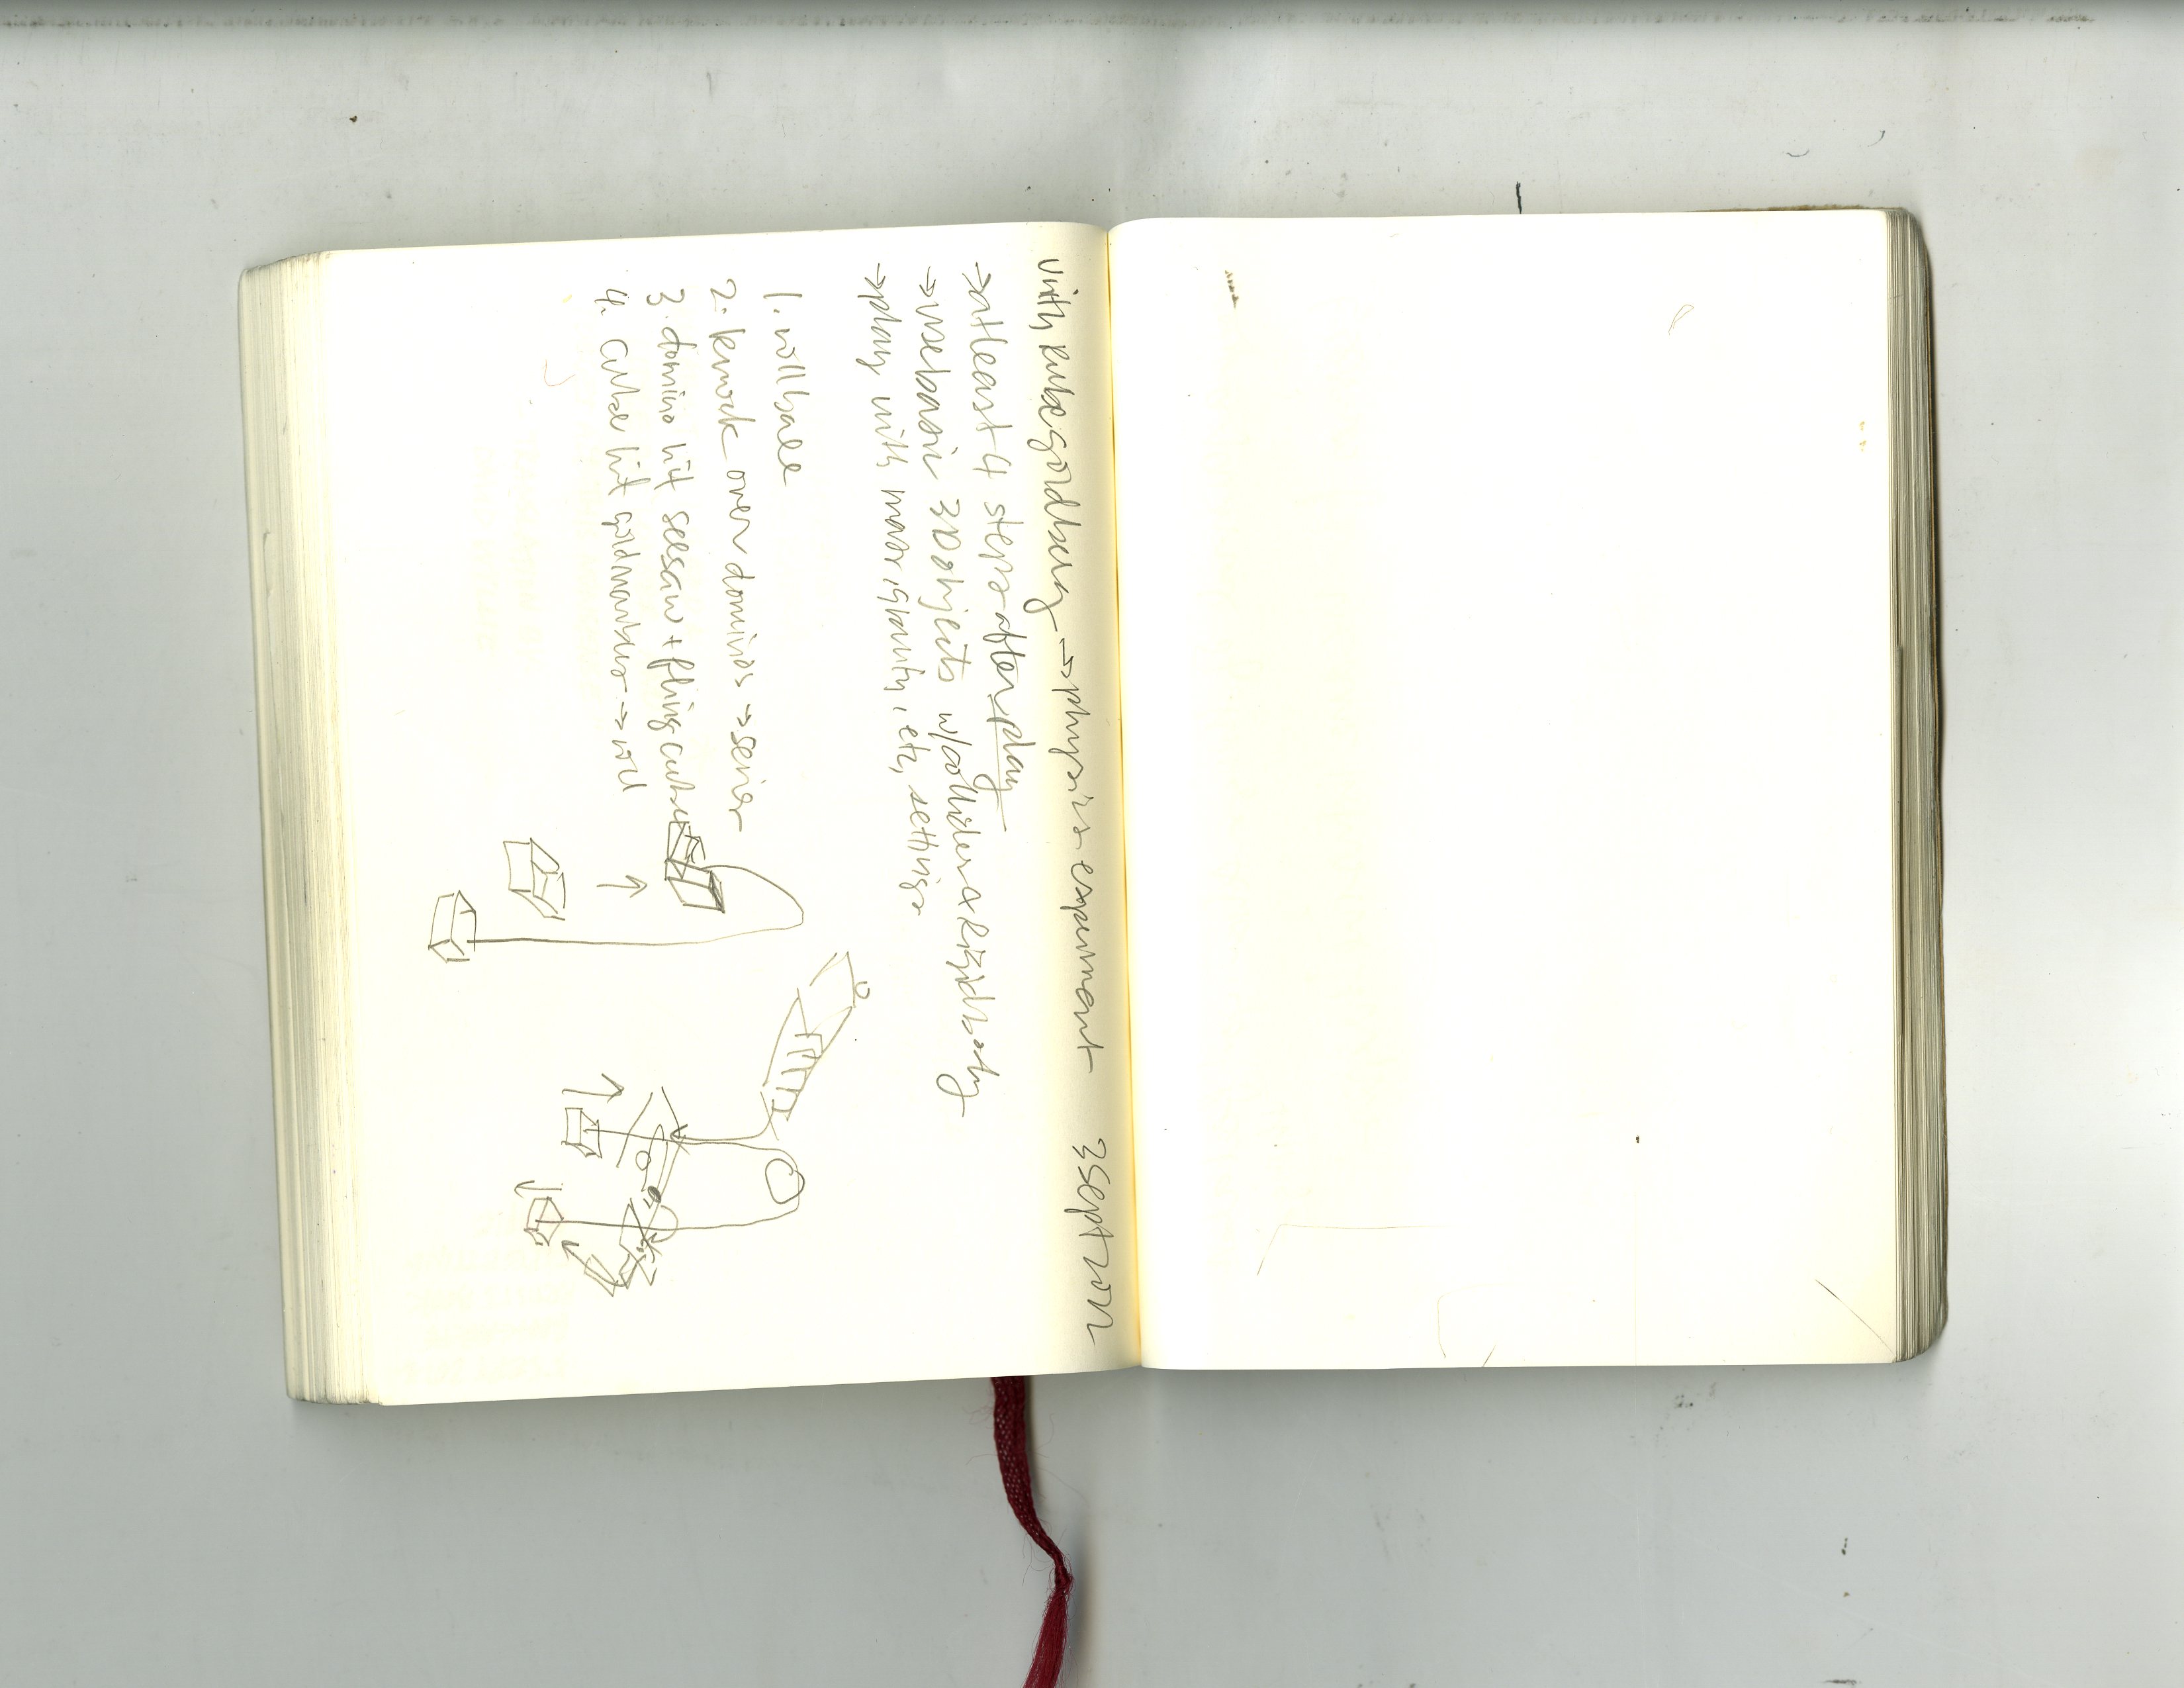 unity rube goldberg → physics experiment 3 Sept 2021
→ at least 4 steps after play
→ use basic 3D objects w/ colliders & Rigidbody
→ play with mass, gravity, etc, settings
1. roll ball
2. knock over dominos → series
3. domino hit seesaw + fling cube
4. cube hit → roll